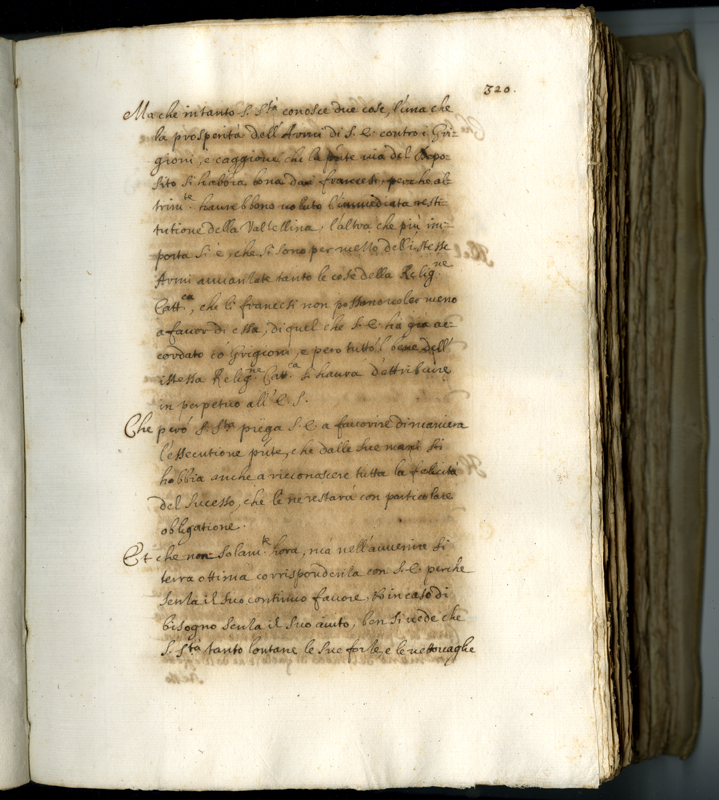 320.
Ma che in tanto S. Sta conosce due cose, l'una che
la prosperità dell'Armi di S. E. contro i Gri-
gioni, è caggione, che la pnte via del Depo-
sito si habbia bona dai francesi, perche al-
trimte haurebbono voluto l'immediata resti-
tutione della Valtellina, l'altra che più im-
porta si è, che si sono per mezzo dell'istesse
Armi avvantate tanto le cose della Religne
Cattca, che li francesi non possano voler meno
a favor di essa, di quel che S. E. ha già ac-
cordato co' Grigioni, e però tutto l bene dell'
istessa Religne Cattca si haurà d'attribuire
in perpetuo all' E. S.
Che però S. Sta priega S. E. a favorire di maniera
l'essecutione pnte, che dalle sue mani si
habbia anche a riconoscere tutta la felicità
del sucesso, che le ne restarà con particolare
obligatione.
Et che non solamte hora, mà nell'avvenire si
terrà ottima corrispondenza con S. E. perche
senza il suo continuo favore, et in caso di
bisogno senza il suo aiuto, ben si vede che
S. Sta tanto lontane le sue forze, e le vettovaglie